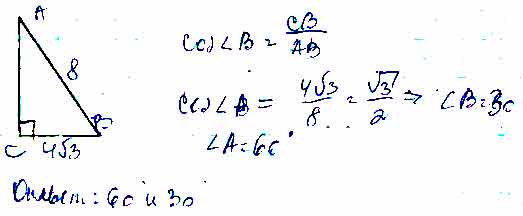 A
8
B
C 4√3
cos ∠B = CB/AB
cos ∠B = 4√3/8 = √3/2 ⇒ ∠B = 30
∠A = 60°
Ответ: 60 и 30